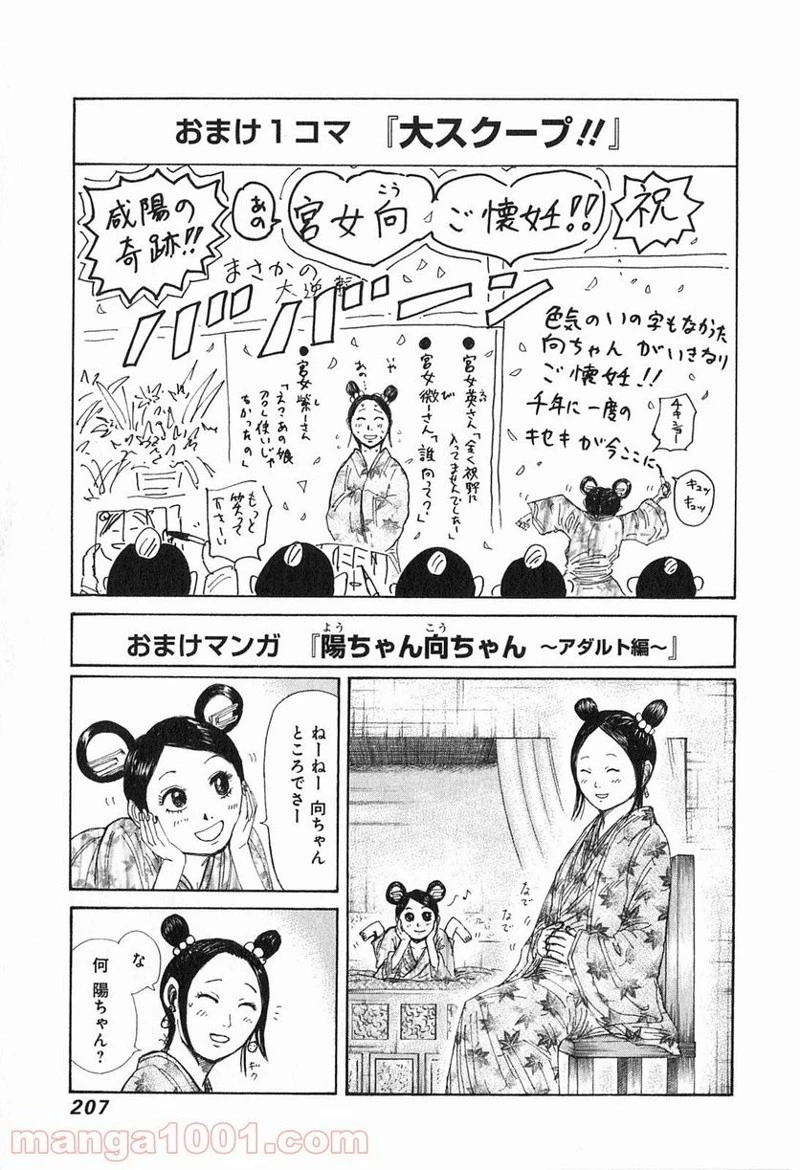 おまけ1コマ 『大スクープ!!』
祝
ご懐妊!!
宮女向
こう
あの
咸陽の
奇跡!!
まさかの
大逆
ババーン
色気のいの字もなかった
向ちゃんがいきなり
ご懐妊!!
千年に一度の
キセキが今ここに
キュッ
キュッ
●宮女英さん「全く視野に
入ってませんでしたー」
●宮女微さん「誰向って?」
び
●宮女紫さん
し
「えっあの娘
使いじゃ
なかったの」
いや
あの
もっと
笑って
下さーい
おまけマンガ 『陽ちゃん向ちゃん ~アダルト編~』
よう
こう
なで
なで
♪
ねーねー 向ちゃん
ところでさー
な
何 陽ちゃん?
ギク
207
manga1001.com